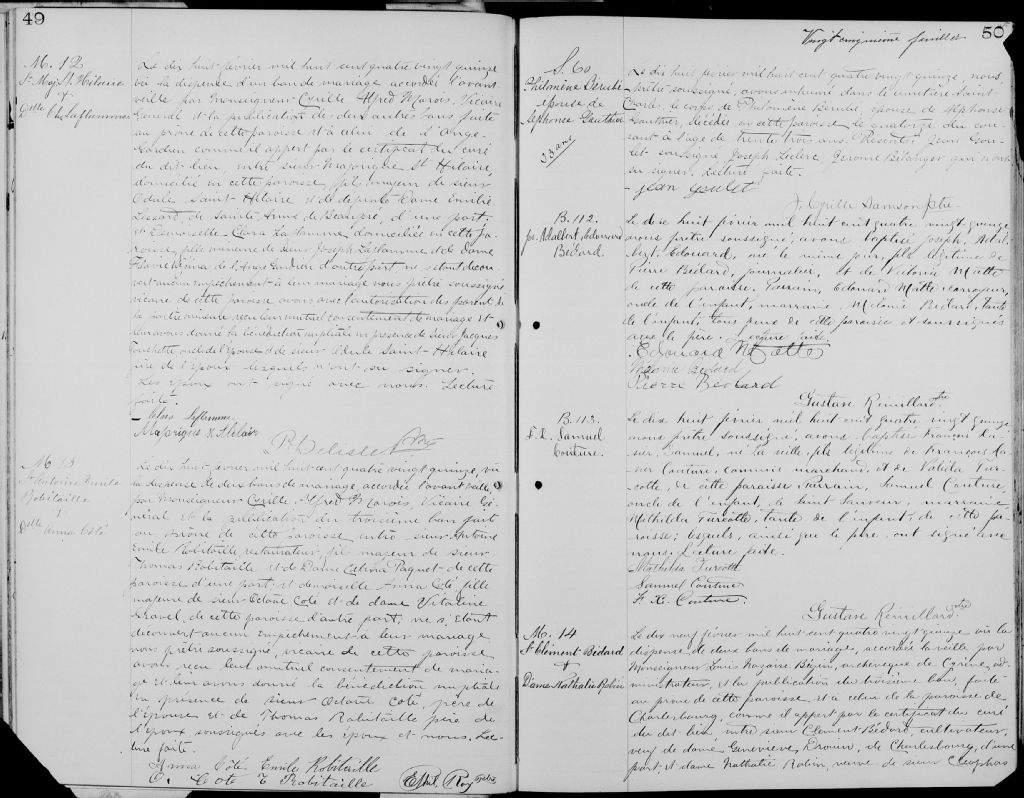 49
M. 12
St. Maj. St. Hilaire
&
Delle Cl. Laflamme
Le dix huit février mil huit cent quatre vingt quinze
vû la dispense d'un ban de mariage accordée l'avant
veille par Monseigneur Cyrille Alfred Marois, Vicaire
Général et la publication des deux autres bans faite
au prône de cette paroisse et à celui de l'Ange-
Gardien comme il appert par le certificat du curé
du dit lieu, entre sieur Majorique St Hilaire,
domicilié en cette paroisse, fils majeur de sieur
Odule Saint-Hilaire et de défunte Dame Emilie
Lessard, de Sainte-Anne de Beaupré, d'une part;
et Demoiselle Clara Laflamme domiciliée en cette pa-
roisse, fille mineure de sieur Joseph Laflamme et de Dame
de l'Ange Gardien d'autre part, ne s'étant décou-
vert aucun empêchement à leur mariage nous prêtre soussigné,
vicaire de cette paroisse avons avec l'autorisation des parents de
la partie mineure reçu leur mutuel consentement de mariage et
leur avons donné la bénédiction nuptiale en présence de sieur Jacques
Touchette oncle de l'épouse et de sieur Odule Saint-Hilaire
père de l'époux lesquels n'ont su signer.
Les époux ont signé avec nous. Lecture
faite.
Clara Laflamme
Majorique St Hilaire
P. Delisle Ptre
M. 13
St Antoine Emile
Robitaille
&
Delle Anna Coté
Le dix huit février mil huit cent quatre vingt quinze, vû
la dispense de deux bans de mariage, accordée l'avant veille
par Monseigneur Cyrille Alfred Marois, Vicaire Gé-
néral et la publication du troisième ban fait
au prône de cette paroisse entre sieur Antoine
Emile Robitaille restaurateur, fils majeur de sieur
Thomas Robitaille et de Dame Celina Paquet de cette
paroisse d'une part; et demoiselle Anna Coté fille
majeure de sieur Octave Coté et de dame Vitaline
Gravel, de cette paroisse d'autre part; ne s'étant
découvert aucun empêchement à leur mariage
nous prêtre soussigné, vicaire de cette paroisse
avons reçu leur mutuel consentement de maria-
ge et leur avons donné la bénédiction nuptiale
en présence de sieur Octave Coté, père de
l'épouse et de Thomas Robitaille père de
l'époux soussignés avec les époux et nous. Lec-
ture faite.
Anna Coté Emile Robitaille
O. Coté T Robitaille Ephr. Roy Ptre
Vingt cinquième feuillet 50
S. 60
Philomène Bérubé
épouse de
Alphonse Gauthier
33 ans
Le dix huit février mil huit cent quatre vingt quinze, nous
prêtre soussigné, avons inhumé dans le cimetière Saint-
Charles, le corps de Philomène Bérubé, épouse de Alphonse
Gauthier, décédée en cette paroisse le quatorze du cou-
rant à l'âge de trente trois ans. Présents: Jean Gou-
let soussigné Joseph Leclerc Jerome Bélanger qui n'ont
su signer. Lecture faite.
Jean Goulet
J. Cyrille Samson ptre
B. 112.
Jos. Adalbert, Edouard
Bédard
Le dix huit février mil huit cent quatre vingt quinze
nous prêtre soussigné, avons baptisé Joseph, Adal-
bert, Edouard, né le même jour, fils légitime de
Pierre Bédard, journalier, et de Victoria Matte
de cette paroisse. Parrain, Edouard Matte corroyeur,
oncle de l'enfant, marraine, Mélanie Bédard, tante
de l'enfant, tous deux de cette paroisse et soussignés
avec le père. Lecture faite.
Edouard Matte
Mélanie Bédard
Pierre Bedard
Gustave Rémillard Ptre
B. 113.
F. X. Samuel
Couture.
Le dix huit février mil huit cent quatre vingt quinze
nous prêtre soussigné, avons baptisé François Xa-
vier, Samuel, né la veille, fils légitime de François Xa-
vier Couture, commis marchand, et de Valéda Tur-
cotte, de cette paroisse. Parrain, Samuel Couture
oncle de l'enfant, de Saint Sauveur, marraine
Mathilda Turcotte, tante de l'enfant, de cette pa-
roisse; lesquels, ainsi que le père, ont signé avec
nous. Lecture faite.
Mathilda Turcotte
Samuel Couture
F. X. Couture.
Gustave Rémillard Ptre
M. 14
St Clément Bédard
&
Dame Nathalie Robin
Le dix neuf février mil huit cent quatre vingt quinze vû la
dispense de deux bans de mariage, accordée la veille par
Monseigneur Louis Nazaire Bégin, archevêque de Cyrène, ad-
ministrateur, et la publication du troisième ban, faite
au prône de cette paroisse et à celui de la paroisse de
Charlesbourg, comme il appert par le certificat du curé
du dit lieu entre sieur Clément Bédard, cultivateur,
veuf de dame Geneviève Drouin, de Charlesbourg, d'une
part, et dame Nathalie Robin, veuve de sieur Cléophas